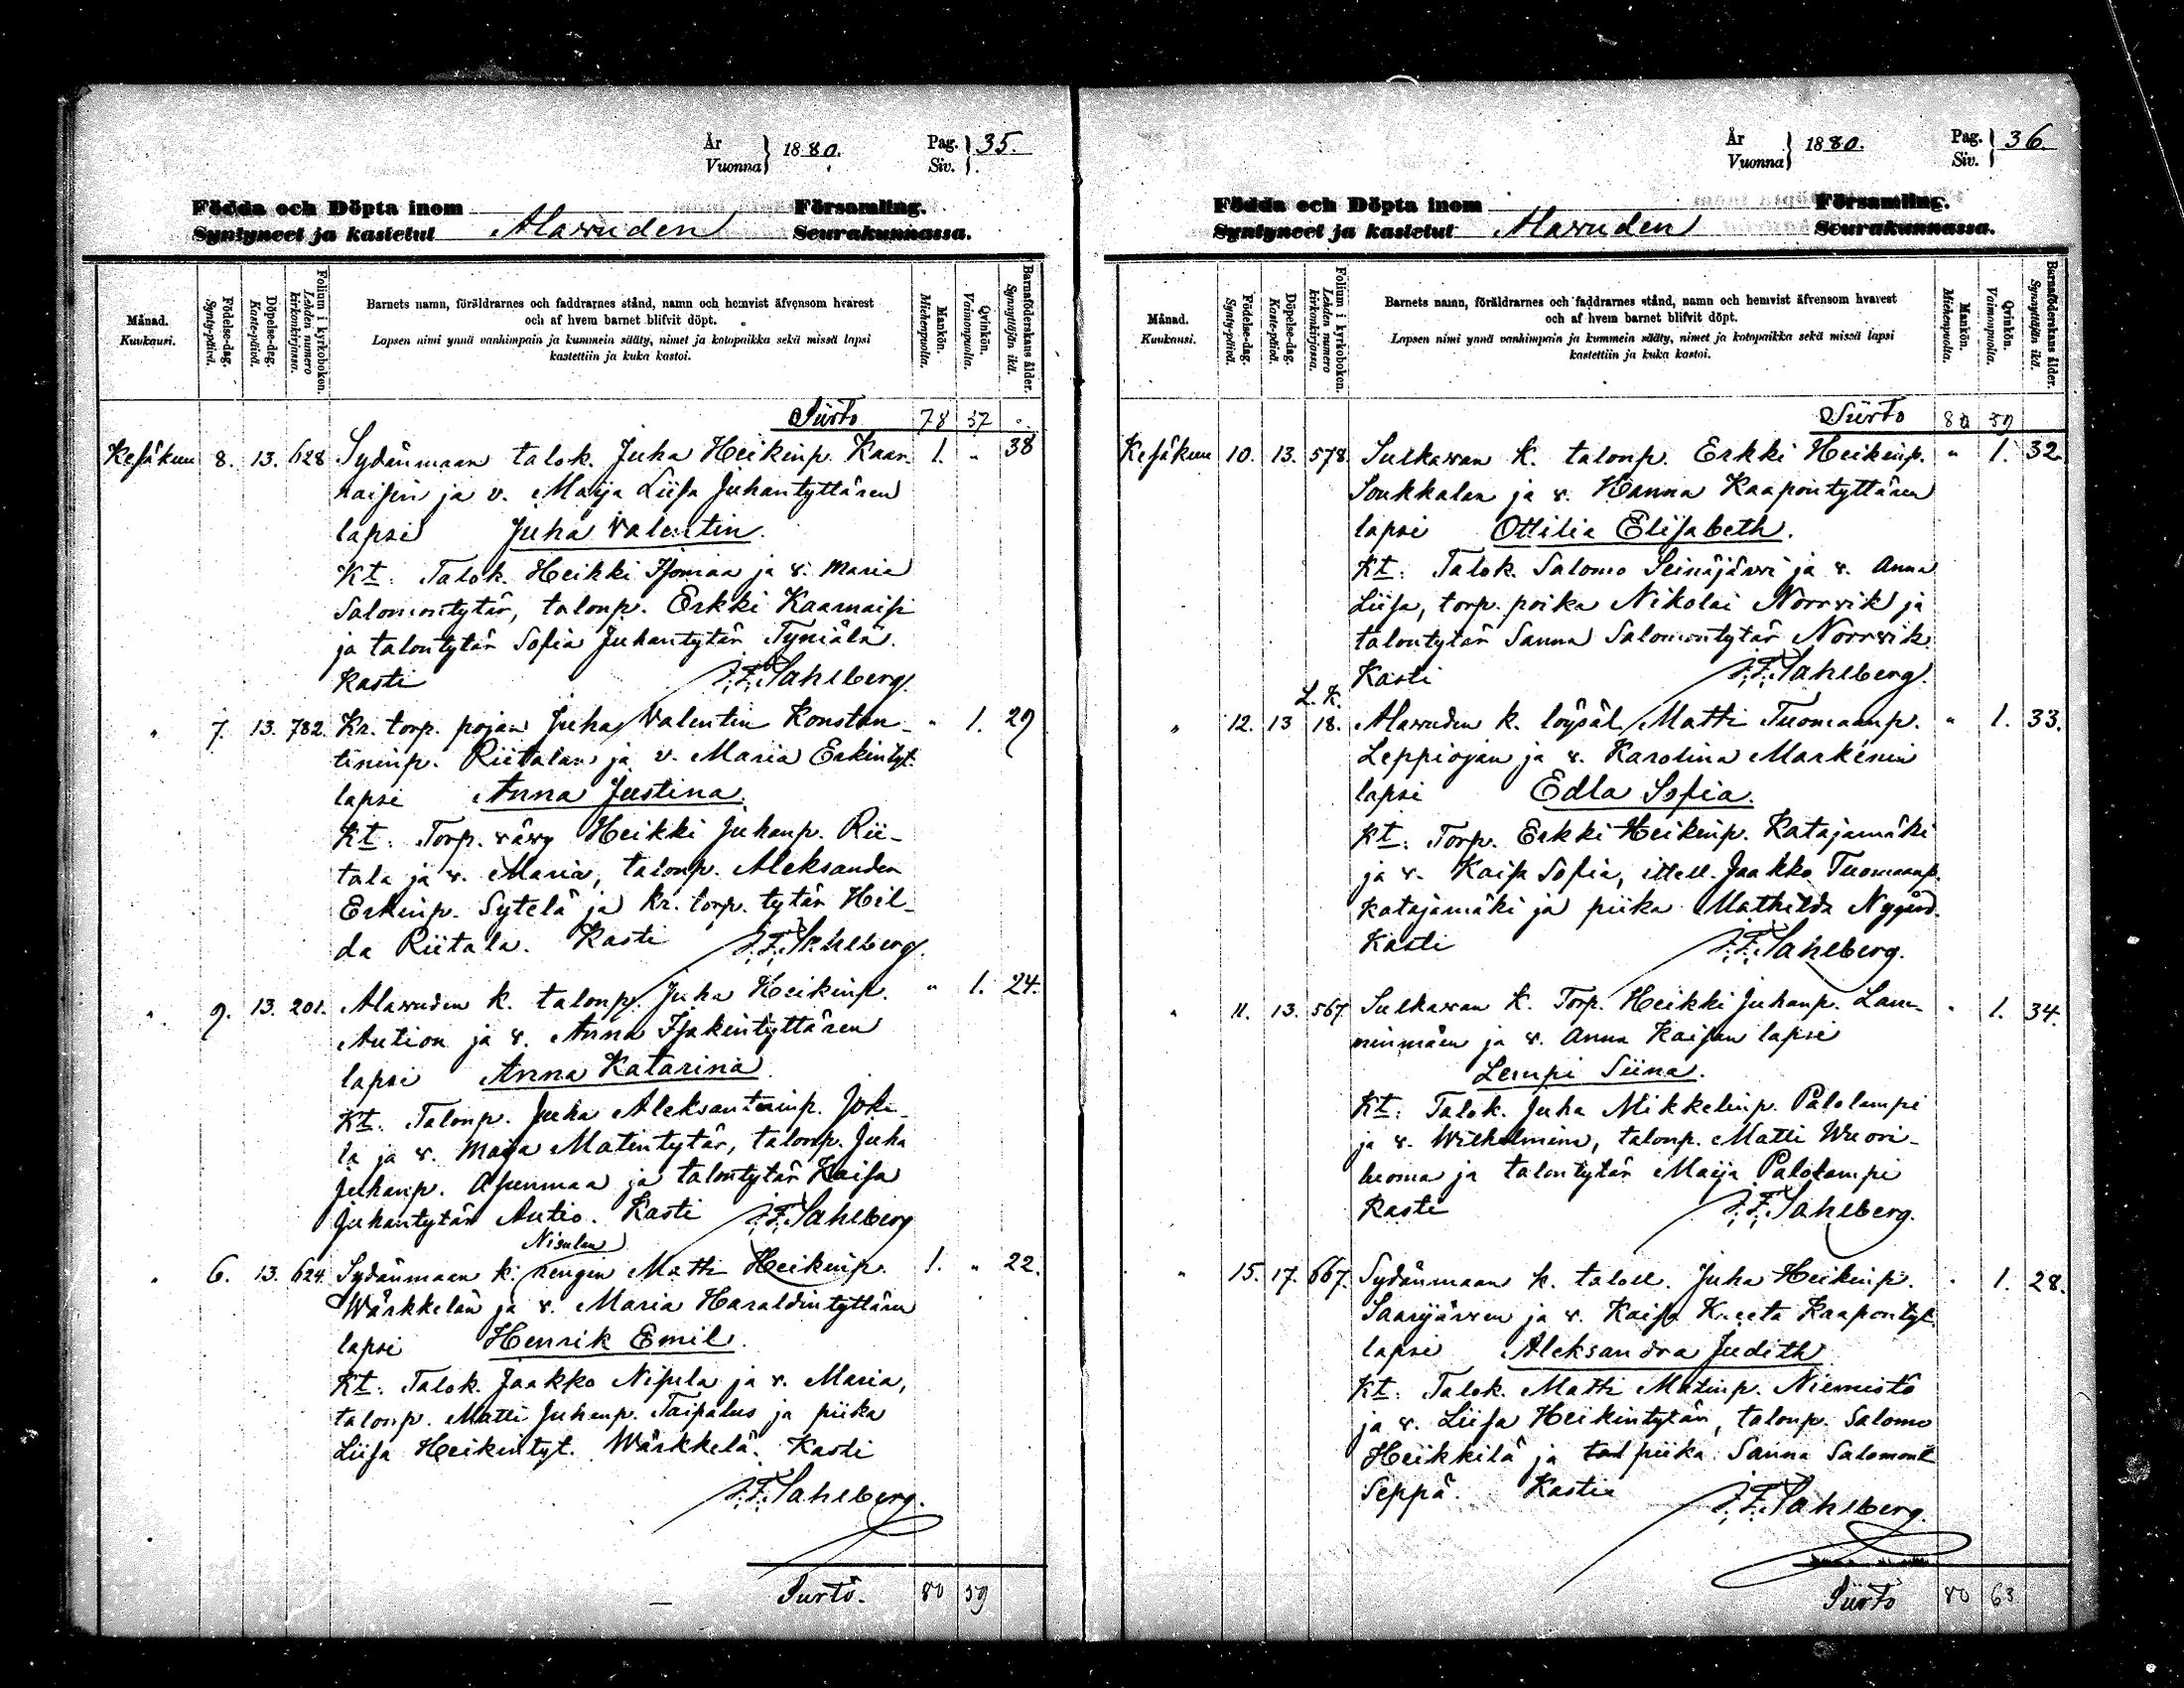 År Vuonna 1880. Pag. Siv. 35.
Födda och Döpta inom Församling.
Syntyneet ja kastetut Alavuden Seurakunnassa.
Månad. Kuukausi.
Födelse-dag. Synty-päivä.
Döpelse-dag. Kaste-päivä.
Folium i kyrkoboken. Lehden numero kirkonkirjassa.
Barnets namn, föräldrarnes och faddrarnes stånd, namn och hemvist äfvensom hvarest
och af hvem barnet blifvit döpt.
Lapsen nimi ynnä vanhimpain ja kummein sääty, nimet ja kotopaikka sekä missä lapsi
kastettiin ja kuka kastoi.
Mankön. Miehenpuolta.
Qvinkön. Vaimonpuolta.
Barnaföderskans ålder. Synnyttäjän ikä.
Siirto 78 57
Kesäkuu 8. 13. 628 Sydänmaan talok. Juha Heikinp. Kaar- 1. " 38
naisen ja v. Maija Liisa Juhantyttären
lapsi Juha Valentin.
Kt: Talok. Heikki Isomaa ja v. Maria
Salomontytär, talonp. Erkki Kaarnaisi
ja talontytär Sofia Juhantytär Tyniälä.
Kasti J.F. Sahlberg.
" 7. 13. 782. Kr. torp. pojan Juha Valentin Konstan- " 1. 29
tininp. Riitalan ja v. Maria Erkintyt.
lapsi Anna Justina.
Kt: Torp. vävy Heikki Juhanp. Rii-
tala ja v. Maria, talonp. Aleksander
Erkinp. Sytelä ja Kr. torp. tytär Hil-
da Riitala. Kasti J.F. Sahlberg.
" 9. 13. 201. Alavuden k. talonp. Juha Heikinp. " 1. 24.
Aution ja v. Anna Isakintyttären
lapsi Anna Katarina
Kt: Talonp. Juha Aleksanterinp. Joki-
la ja v. Maija Matintytär, talonp. Juha
Juhanp. Asunmaa ja talontytär Kaisa
Juhantytär Autio. Kasti J.F. Sahlberg
Nisulan
" 6. 13. 624. Sydänmaan k. rengin Matti Heikinp. 1. " 22.
Wärkkelän ja v. Maria Haraldintyttären
lapsi Henrik Emil.
Kt: Talok. Jaakko Nisula ja v. Maria,
talonp. Matti Juhanp. Taipalus ja piika
Liisa Heikintyt. Wärkkelä. Kasti
J.F. Sahlberg.
Siirto. 80 59
År Vuonna 1880. Pag. Siv. 36.
Födda och Döpta inom Församling.
Syntyneet ja kastetut Alavuden Seurakunnassa.
Månad. Kuukausi.
Födelse-dag. Synty-päivä.
Döpelse-dag. Kaste-päivä.
Folium i kyrkoboken. Lehden numero kirkonkirjassa.
Barnets namn, föräldrarnes och faddrarnes stånd, namn och hemvist äfvensom hvarest
och af hvem barnet blifvit döpt.
Lapsen nimi ynnä vanhimpain ja kummein sääty, nimet ja kotopaikka sekä missä lapsi
kastettiin ja kuka kastoi.
Mankön. Miehenpuolta.
Qvinkön. Vaimonpuolta.
Barnaföderskans ålder. Synnyttäjän ikä.
Siirto 80 59
Kesäkuu 10. 13. 578. Sulkavan k. talonp. Erkki Heikinp. " 1. 32.
Soukkalan ja v. Hanna Kaapontyttären
lapsi Ottilia Elisabeth.
Kt: Talok. Salomo Seinäjärvi ja v. Anna
Liisa, torp. poika Nikolai Norrvik ja
talontytär Sanna Salomontytär Norrvik.
Kasti J.F. Sahlberg.
L.K.
" 12. 13 18. Alavuden k. löysäl. Matti Tuomaanp. " 1. 33.
Leppiojan ja v. Karolina Markénin
lapsi Edla Sofia.
Kt: Torp. Erkki Heikinp. Katajamäki
ja v. Kaisa Sofia, itsell. Jaakko Tuomaanp.
Katajamäki ja piika Mathilda Nygård.
Kasti J.F. Sahlberg.
" 11. 13. 567. Sulkavan k. Torp. Heikki Juhanp. Lam- " 1. 34.
minmäen ja v. Anna Kaisan lapsi
Lempi Siina.
Kt: Talok. Juha Mikkelinp. Palolampi
ja v. Wilhelmina, talonp. Matti Wuori-
huoma ja talontytär Maija Palolampi
Kasti J.F. Sahlberg.
" 15. 17. 667. Sydänmaan k. taloll. Juha Heikinp. " 1. 28.
Saarijärven ja v. Kaisa Kreeta Kaapontyt.
lapsi Aleksandra Judith
Kt: Talok. Matti Matinp. Niemistö
ja v. Liisa Heikintytär, talonp. Salomo
Heikkilä ja piika Sanna Salomont.
Seppä. Kasti J.F. Sahlberg.
Siirto 80 63